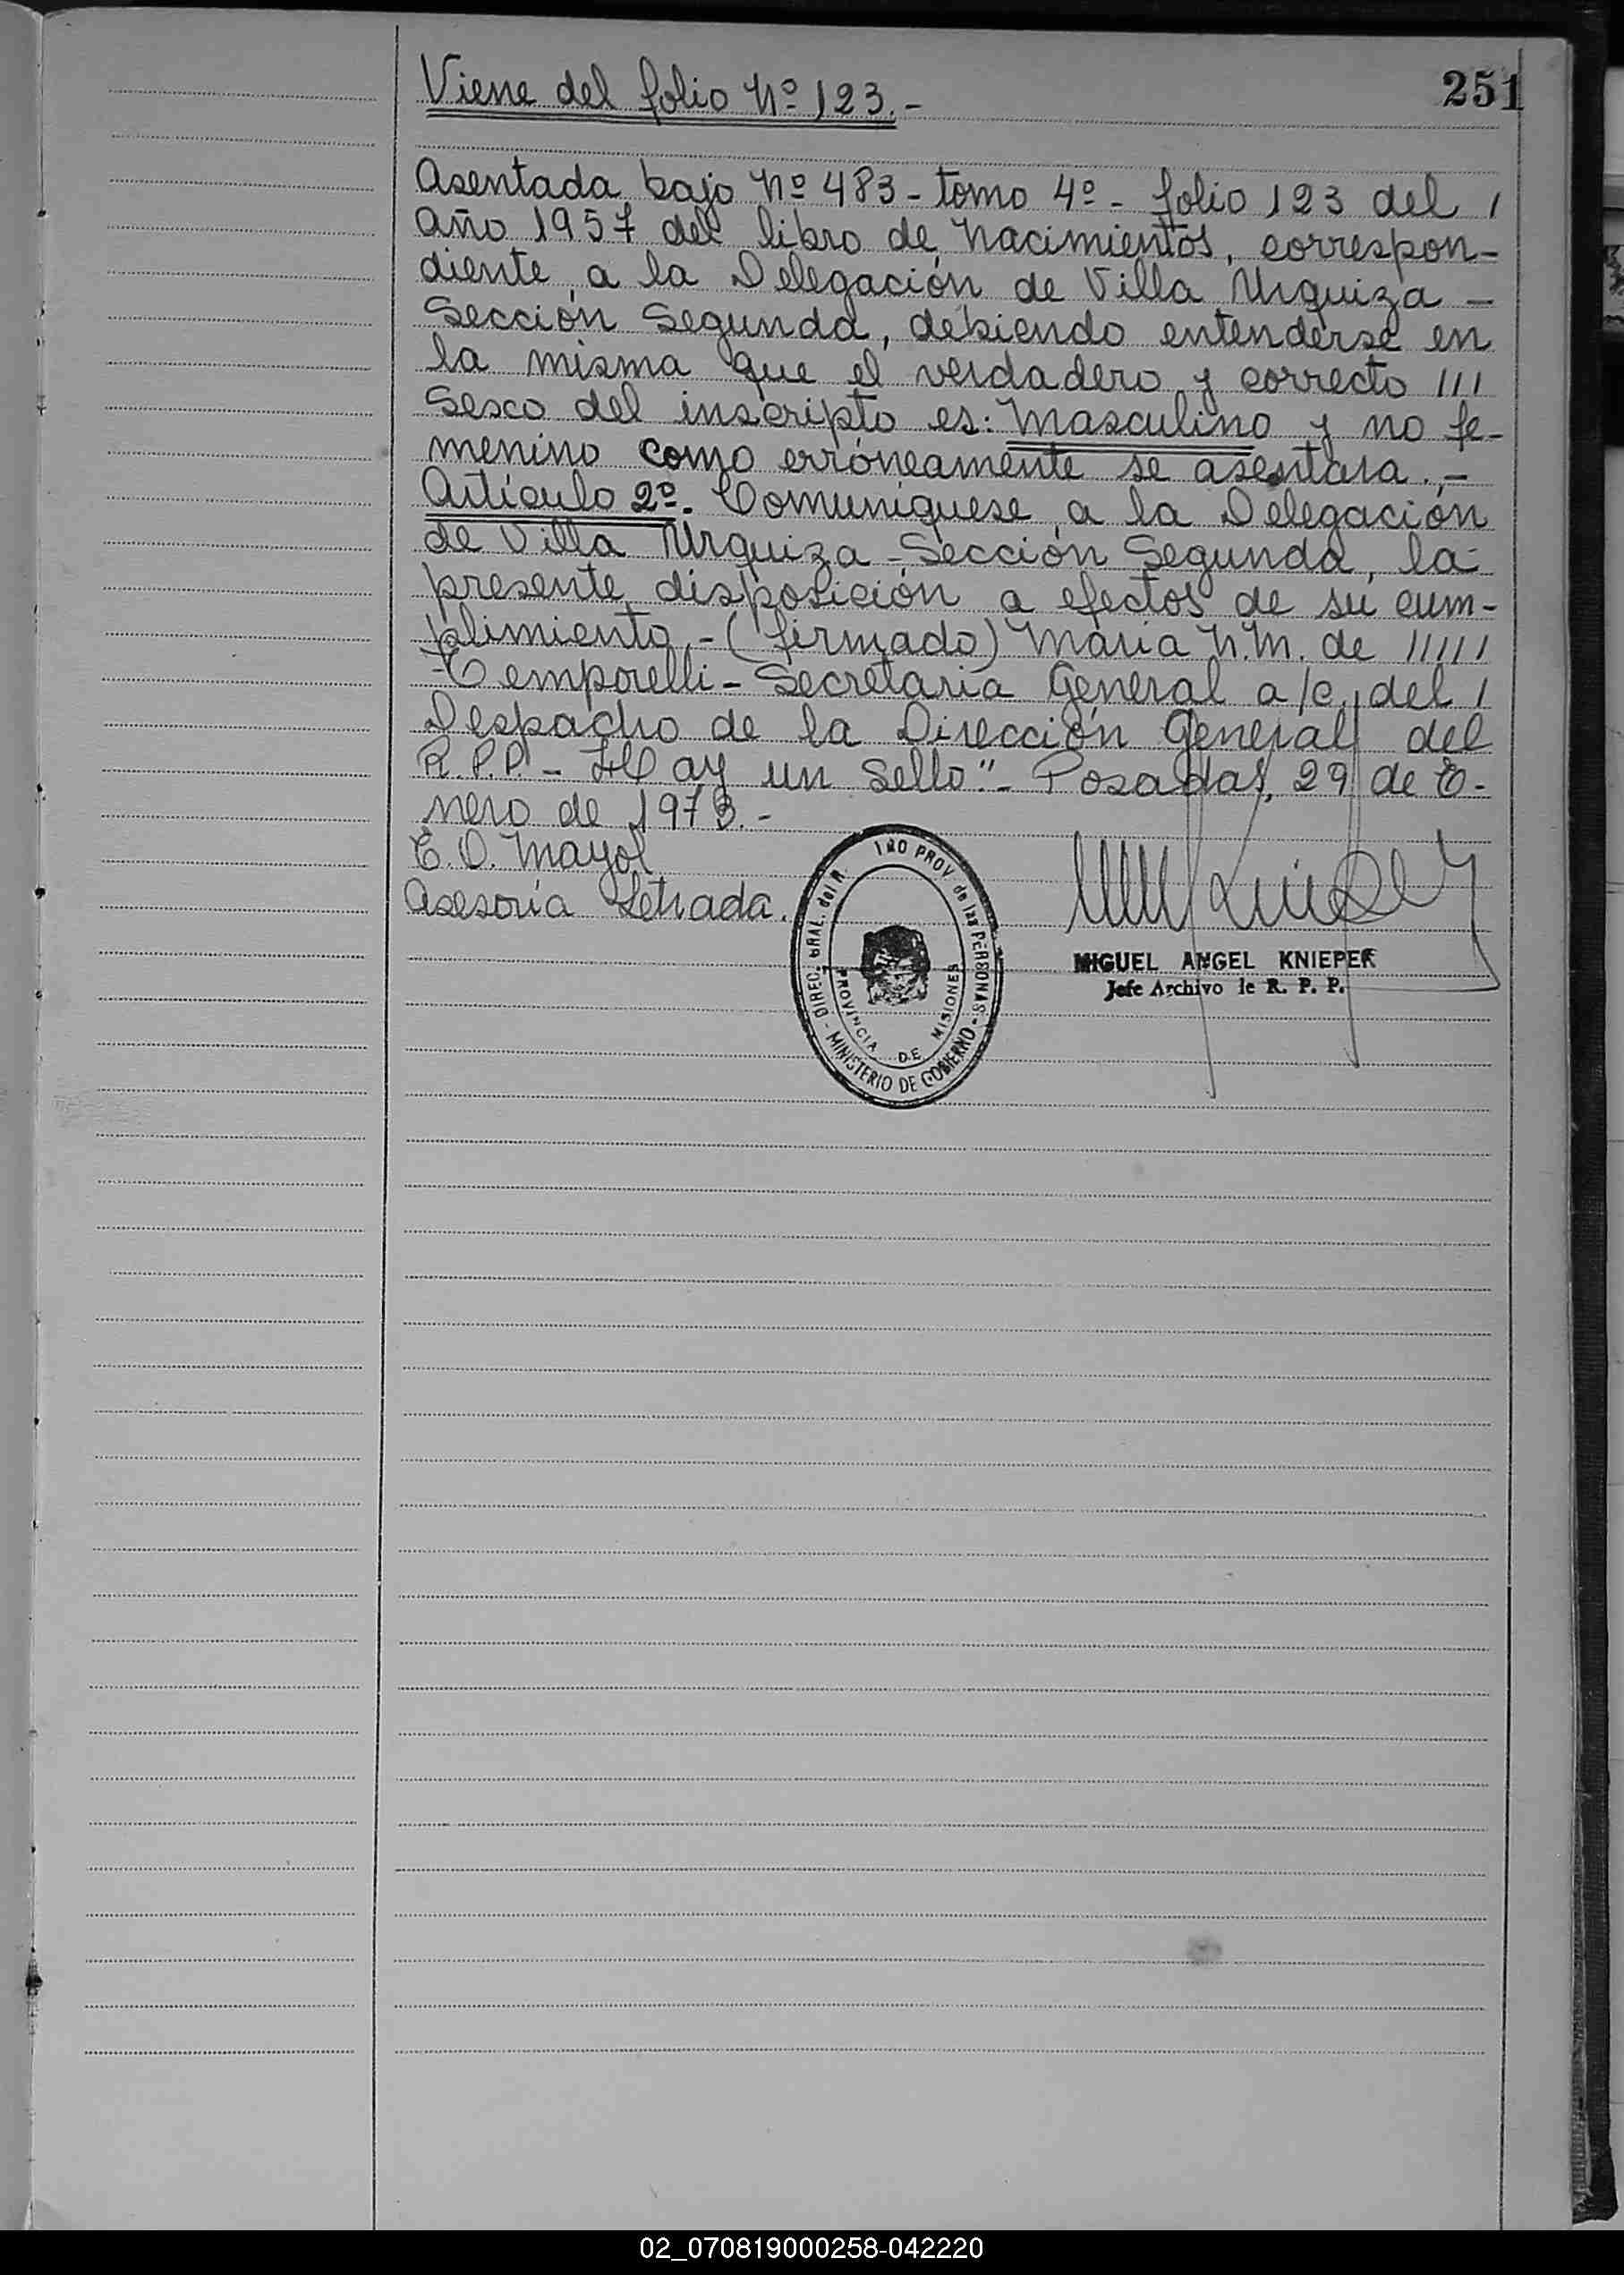 251
Viene del folio Nº 123.-
Asentada bajo Nº 483 - tomo 4º - folio 123 del /
Año 1957 del libro de Nacimientos, correspon-
diente a la Delegación de Villa Urquiza -
Sección Segunda, debiendo entenderse en
la misma que el verdadero y correcto ///
Sexo del inscripto es: Masculino y no fe-
menino como erróneamente se asentara.-
Artículo 2º- Comuníquese a la Delegación
de Villa Urquiza - Sección Segunda, la
presente disposición a efectos de su cum-
plimiento.- (firmado) María N.M. de /////
Temporelli - Secretaria General a/c. del /
Despacho de la Dirección General del
R.P.P. - Hay un Sello".- Posadas, 29 de E-
nero de 1973.-
E.O. Mayol
Asesoría Letrada.
DIREC. GRAL. del R PROV de las PERSONAS - MINISTERIO DE GOBIERNO -
PROVINCIA DE MISIONES
MIGUEL ANGEL KNIEPER
Jefe Archivo de R. P. P.
02_070819000258-042220